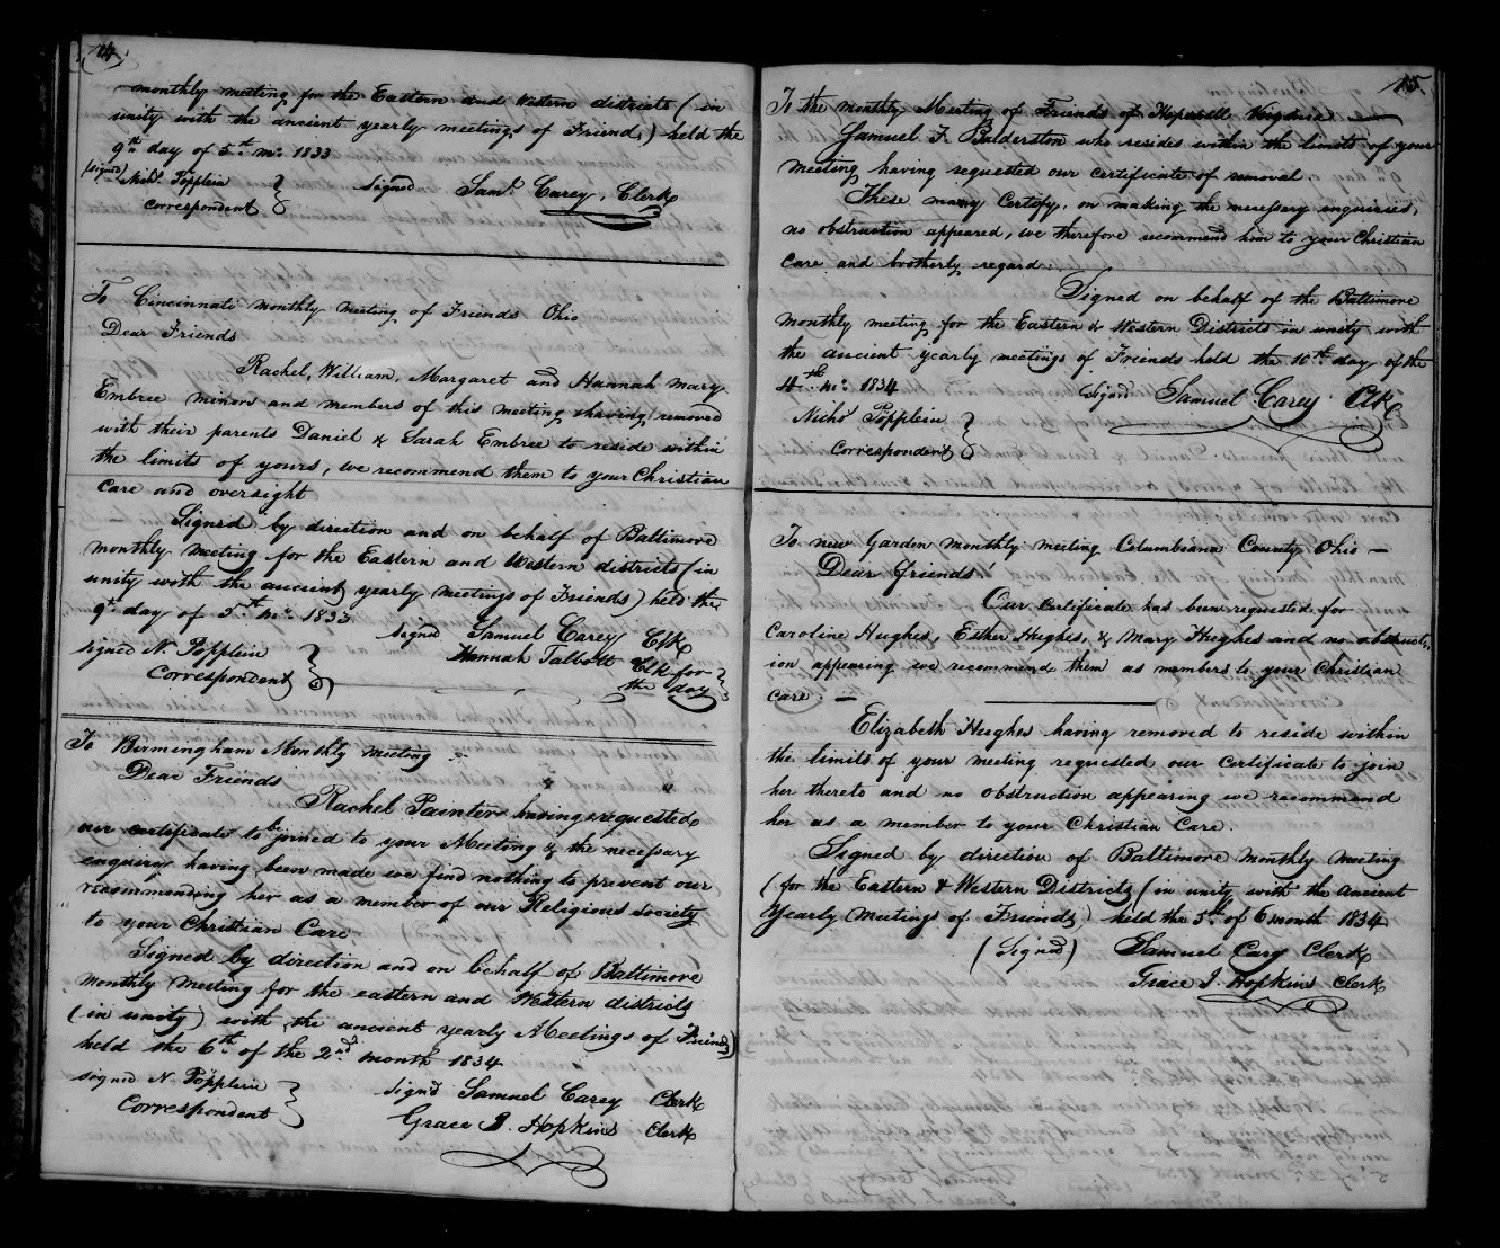 14
monthly meeting for the Eastern and Western districts (in
unity with the ancient yearly meetings of Friends) held the
9th day of 5th mo. 1833
(signed) Nichs. Popplein
correspondent
Signed Saml. Carey, Clerk
To Cincinnati monthly meeting of Friends Ohio
Dear Friends
Rachel, William, Margaret and Hannah Mary
Embree minors and members of this meeting having removed
with their parents Daniel & Sarah Embree to reside within
the limits of yours, we recommend them to your Christian
Care and oversight
Signed by direction and on behalf of Baltimore
monthly meeting for the Eastern and Western districts (in
unity with the ancient yearly meetings of Friends) held the
9th day of 5th mo. 1833
Signed Samuel Carey Clk
Hannah Talbott Clk for
the day
signed N. Popplein
Correspondent
To Birmengham Monthly meeting
Dear Friends
Rachel Painter having requested
our certificate to be joined to your Meeting & the necessary
enquiry having been made we find nothing to prevent our
recommending her as a member of our Religious Society
to your Christian Care
Signed by direction and on behalf of Baltimore
monthly meeting for the eastern and Western districts
(in unity) with the ancient yearly Meetings of Friends)
held the 6th of the 2nd month 1834
signed N. Popplein
Correspondent
Signd Samuel Carey Clerk
Grace J. Hopkins Clerk
15
To the monthly Meeting of Friends of Hopewell Virginia
Samuel F. Balderston who resides within the limits of your
meeting having requested our certificate of removal.
These may Certify, on making the necessary enquiries,
no obstruction appeared, we therefore recommend him to your Christian
Care and brotherly regard.
Signed on behalf of the Baltimore
monthly meeting for the Eastern & Western Districts in unity with
the ancient yearly meetings of Friends held the 10th day of the
4th mo. 1834
Signd Samuel Carey Clk
Nichs Popplein
Correspondent
To new Garden monthly meeting Columbiana County Ohio —
Dear friends
Our Certificate has been requested for
Caroline Hughes, Esther Hughes, & Mary Hughes and no obstruct-
ion appearing we recommend them as members to your Christian
care. —
Elizabeth Hughes having removed to reside within
the limits of your meeting requested our Certificate to join
her thereto and no obstruction appearing we recommend
her as a member to your Christian Care.
Signed by direction of Baltimore Monthly Meeting
(for the Eastern & Western Districts (in unity with the Ancient
Yearly Meetings of Friends) held the 5th of 6 month 1834
(Signed) Samuel Cary Clerk
Grace J. Hopkins Clerk